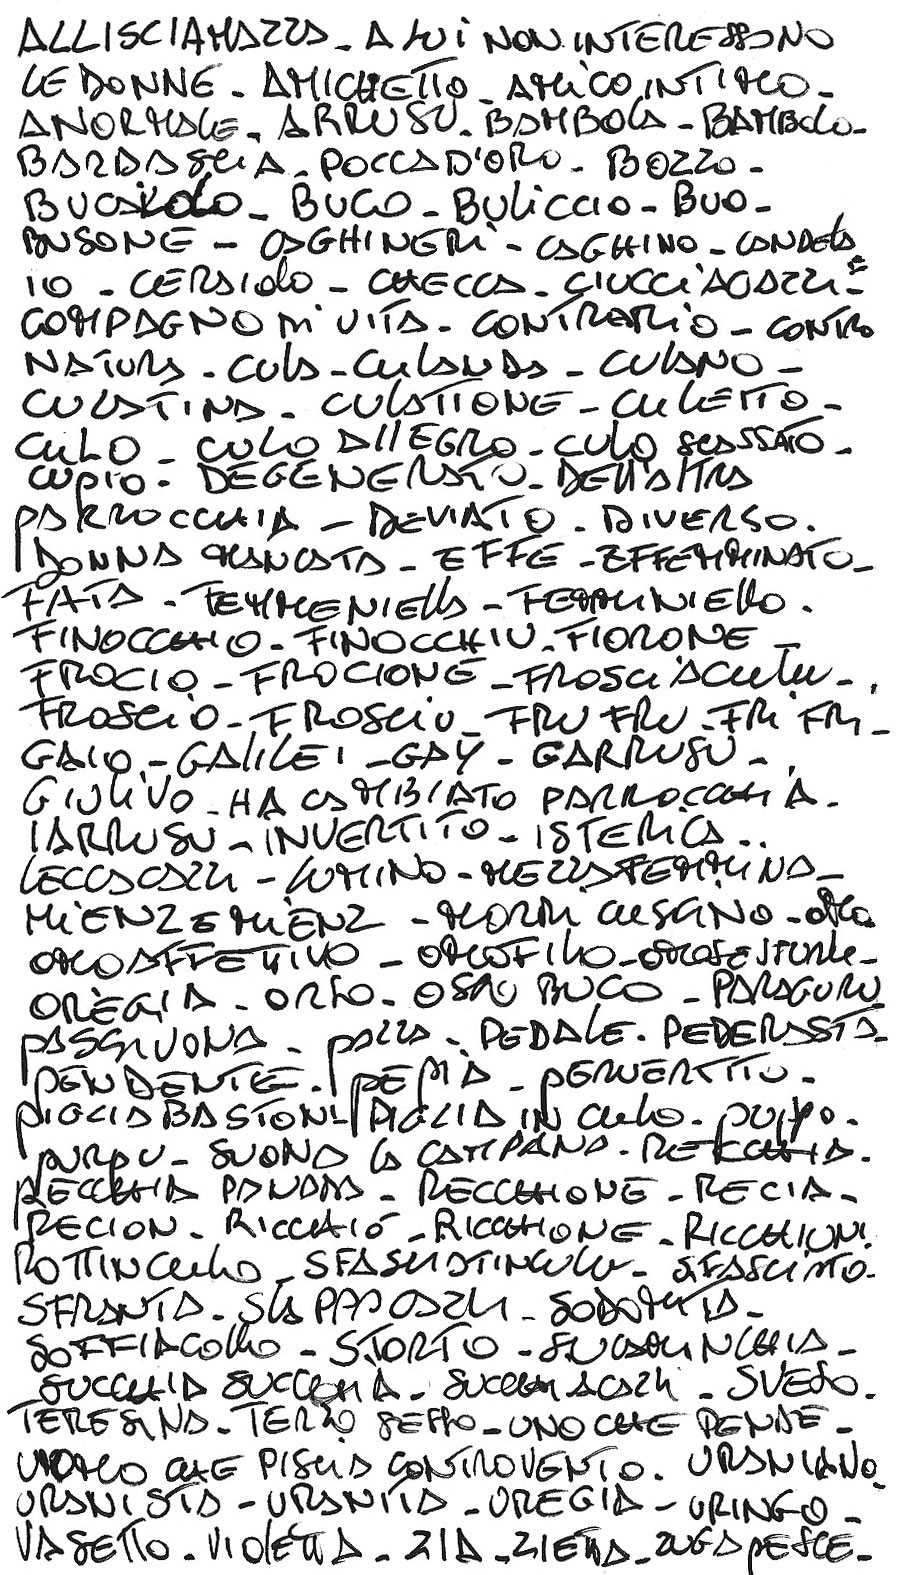 ALLISCIAMAZZA - A LUI NON INTERESSONO
LE DONNE - AMICHETTO - AMICO INTIMO -
ANORMALE - ARRUSU - BAMBOLA - BAMBOLO -
BARDASCIA - POCCAD'ORO - BOZZO -
BUCAIOLO - BUCO - BULICCIO - BUO -
BUSONE - CAGHINERI - CAGHINO - CANDELA
IO - CERAIOLO - CHECCA - CIUCCIACAZZI =
COMPAGNO DI VITA - CONTRARIO - CONTRO
NATURA - CULA - CULANDA - CULANO -
CULATTINA - CULATTONE - CULETTO -
CULO - CULO ALLEGRO - CULO SCASSATO -
CUPIO - DEGENERATO - DELL'ALTRA
PARROCCHIA - DEVIATO - DIVERSO -
DONNA MANCATA - EFFE - EFFEMMINATO -
FATA - FEMMENIELLA - FEMMINIELLO .
FINOCCHIO - FINOCCHIU - FIORONE -
FROCIO - FROCIONE - FROSCIACULU - .
FROSCIO - FROSCIU - FRU FRU - FRI FRI -
GAIO - GALILEI - GAY - GARRUSU - .
GIULIVO - HA CAMBIATO PARROCCHIA -
IARRUSU - INVERTITO - ISTERICA ..
LECCACAZZI - LUMINO - MEZZAFEMMINA -
MIENZ E MIENZ - MORDI CUSCINO - OMO
OMOAFFETTIVO - OMOFILO - OMOSESSUALE -
OREGIA - ORFO - OSSO BUCO - PARAGURU
PASSIVONA - PAZZA - PEDALE - PEDERASTA -
PENDENTE - PEPIA - PERVERTITO -
PIGLIA BASTONI - PIGLIA IN CULO - PUPPO .
PURPU - SUONA LA CAMPANA - RECCHIA .
RECCHIA PANARA - RECCHIONE - RECIA -
RECION - RICCHIÒ - RICCHIONE - RICCHIUNI
ROTTINCULO - SFASCIATINCULU - SFASCIATO -
SFRANTA - SLAPPACAZZI - SODOMITA -
SOFFIACOLLO - STORTO - SUCAMINCHIA -
SUCCHIA SUCCHIA - SUCCHIACAZZI - SVESO -
TERESINA - TERZO SESSO - UNO CHE PENDE -
UOMO CHE PISCIA CONTROVENTO - URANIANO
URANISTA - URANITA - UREGIA - URINGO -
VASETTO - VIOLETTA - ZIA - ZIETTA - ZUGAPESCE -